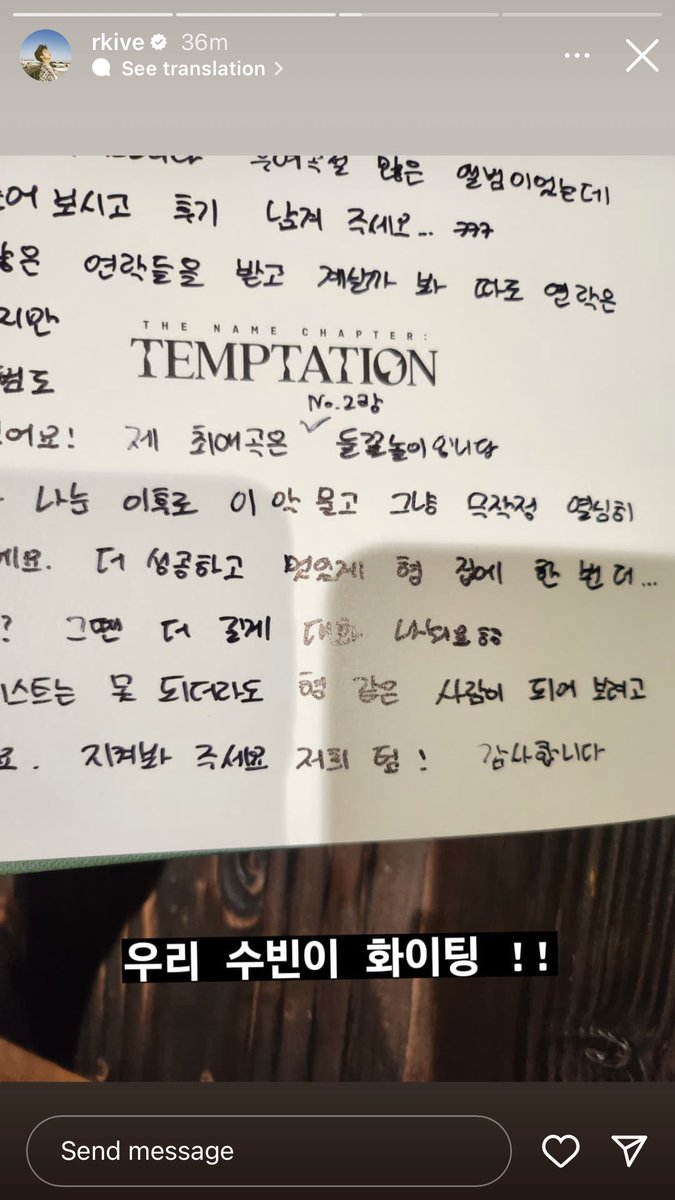 rkive 36m
See translation >
우여곡절 많은 앨범이었는데
보시고 후기 남겨 주세요... ㅋㅋㅋ
많은 연락들을 받고 계실까 봐 따로 연락은
지만
THE NAME CHAPTER:
TEMPTATION
범도
No.2랑
어요! 제 최애곡은 ✓ 돌길놀이입니다
나눈 이후로 이 악 물고 그냥 무작정 열심히
세요. 더 성공하고 멋있게 형 집에 한 번 더...
? 그땐 더 길게 대화 나눠요ㅎㅎ
티스트는 못 되더라도 형 같은 사람이 되어 보려고
요. 지켜봐 주세요 저희 텀! 감사합니다
우리 수빈이 화이팅 !!
Send message